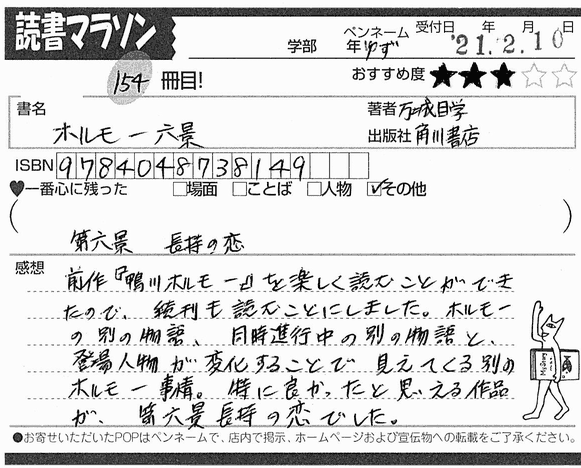 読書マラソン
学部 年 ペンネーム ゆず 受付日 年 月 日
'21.2.10
154 冊目!
おすすめ度 ★★★☆☆
書名 ホルモー六景
著者 万城目学
出版社 角川書店
ISBN 9784048738149
♥一番心に残った □場面 □ことば □人物 ☑その他
( 第六景 長持の恋 )
感想
前作『鴨川ホルモー』を楽しく読むことができ
たので、続刊も読むことにしました。ホルモー
の別の物語、同時進行中の別の物語と、
登場人物が変化することで見えてくる別の
ホルモー事情。特に良かったと思える作品
が、第六景長持の恋でした。
●お寄せいただいたPOPはペンネームで、店内で掲示、ホームページおよび宣伝物への転載をご了承ください。